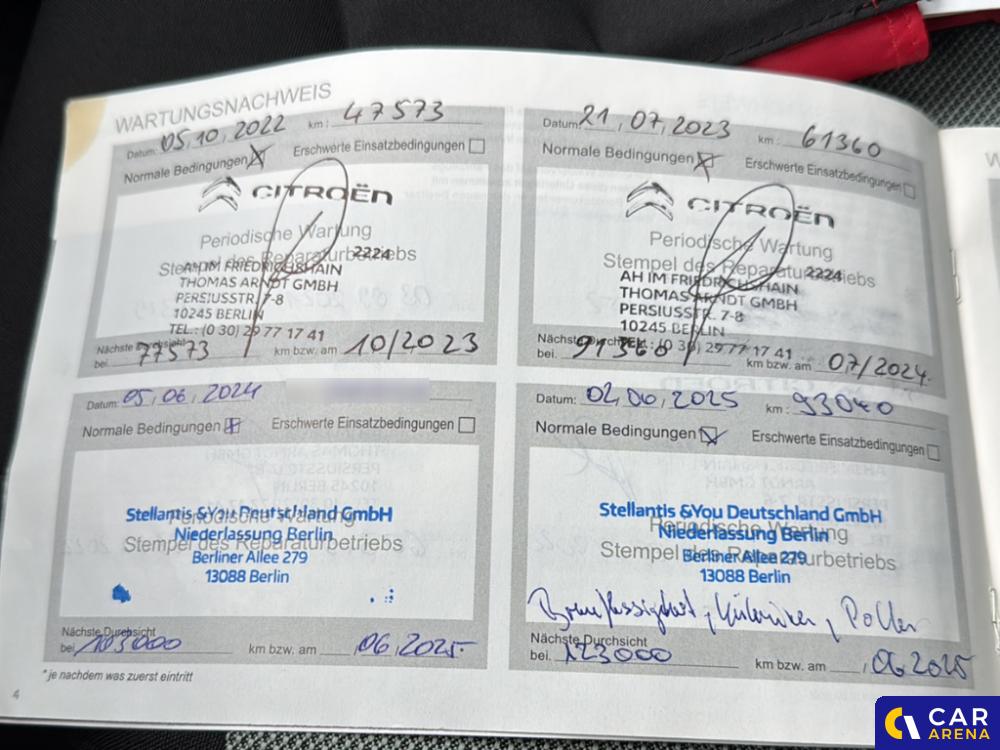 WARTUNGSNACHWEIS
Datum: 05,10,2022 km: 47573
Normale Bedingungen Erschwerte Einsatzbedingungen
CITROËN
Periodische Wartung
Stempel des Reparaturbetriebs
2224
AH IM FRIEDRICHSHAIN
THOMAS ARNDT GMBH
PERSIUSSTR. 7-8
10245 BERLIN
TEL.: (0 30) 29 77 17 41
Nächste Durchsicht
bei. 77573 km bzw. am 10/2023
Datum: 21,07,2023 km: 61360
Normale Bedingungen Erschwerte Einsatzbedingungen
CITROËN
Periodische Wartung
Stempel des Reparaturbetriebs
2224
AH IM FRIEDRICHSHAIN
THOMAS ARNDT GMBH
PERSIUSSTR. 7-8
10245 BERLIN
TEL.: (0 30) 29 77 17 41
Nächste Durchsicht
bei. 91360 km bzw. am 07/2024.
Datum: 05,06,2024
Normale Bedingungen Erschwerte Einsatzbedingungen
Stellantis &You Deutschland GmbH
Periodische Wartung
Niederlassung Berlin
Stempel des Reparaturbetriebs
Berliner Allee 279
13088 Berlin
Nächste Durchsicht
bei. 103000 km bzw. am 06,2025.
Datum: 02,06,2025 km: 93040
Normale Bedingungen Erschwerte Einsatzbedingungen
Stellantis &You Deutschland GmbH
Periodische Wartung
Niederlassung Berlin
Stempel des Reparaturbetriebs
Berliner Allee 279
13088 Berlin
Bremsflüssigkeit, , Pollen
Nächste Durchsicht
bei. 123000 km bzw. am ,06 2025
* je nachdem was zuerst eintritt
4
CAR
ARENA